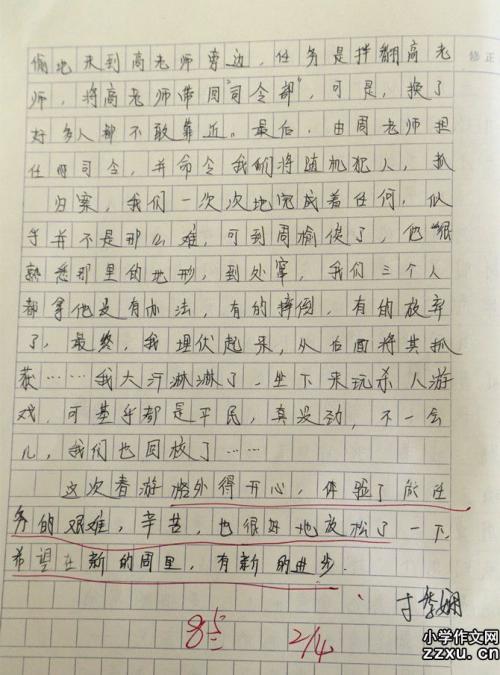 偷地来到高老师旁边，任务是拌翻高老
师，将高老师带回“司令部”，可是，换了
好多人都不敢靠近。最后，由周老师担
任司令，并命令我们将随机犯人，抓
归案，我们一次次地完成着任何，似
乎并不是那么难，可到周愉俊了，他“很
熟悉那里的地形，到处窜，我们三个人
都拿他没有办法，有的摔倒，有的放弃
了，最终，我埋伏起来，从后面将其抓
获……我大汗淋淋了，坐下来玩杀人游
戏，可基乎都是平民，真没劲，不一会
儿，我们也回校了……
这次春游格外得开心，体验了做任
务的艰难，辛苦，也很好地放松了一下，
希望在新的周里，有新的进步．
85
2/4
修正
小学作文网
zzxu.cn